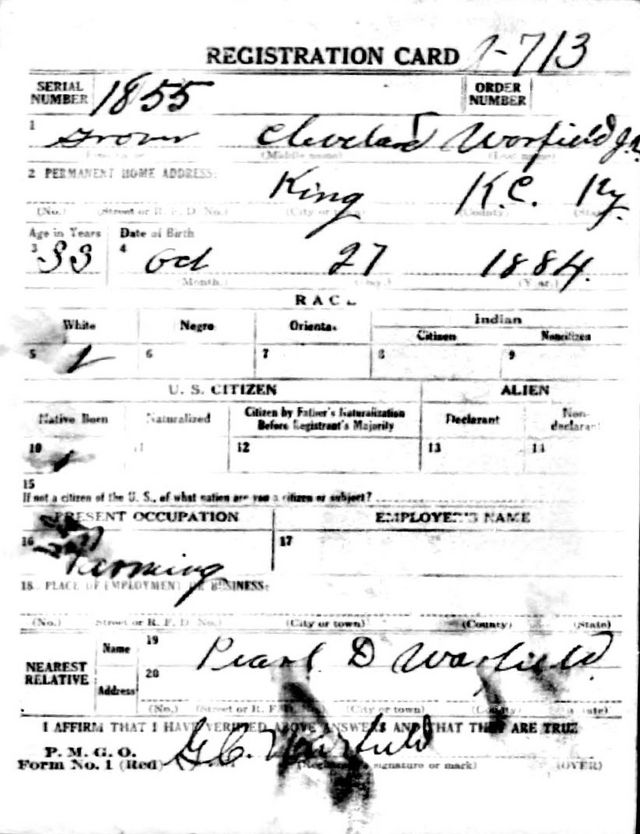 REGISTRATION CARD 1-713
SERIAL NUMBER 1855 ORDER NUMBER
1 Grover Cleveland Warfield Jr
(Middle name)
2 PERMANENT HOME ADDRESS:
King K.C. Ky.
(No.) (Street or R. F. D. No.) (City or town) (County) (State)
Age in Years Date of Birth
3 33 4 Oct 27 1884.
(Month.) (Day.) (Year.)
RACE
White Negro Oriental Indian
Citizen Noncitizen
5 6 7 8 9
U. S. CITIZEN ALIEN
Native Born Naturalized Citizen by Father's Naturalization Before Registrant's Majority Declarant Non-declarant
10 11 12 13 14
15
If not a citizen of the U. S., of what nation are you a citizen or subject?
PRESENT OCCUPATION EMPLOYER'S NAME
16 Farming 17
18 PLACE OF EMPLOYMENT OR BUSINESS:
(No.) (Street or R. F. D. No.) (City or town) (County) (State)
NEAREST RELATIVE Name 19 Pearl D Warfield
Address 20
(No.) (Street or R. F. D. No.) (City or town) (County) (State)
I AFFIRM THAT I HAVE VERIFIED ABOVE ANSWERS AND THAT THEY ARE TRUE
P. M. G. O.
Form No. 1 (Red) G.C. Warfield
(Registrant's signature or mark) (OVER)